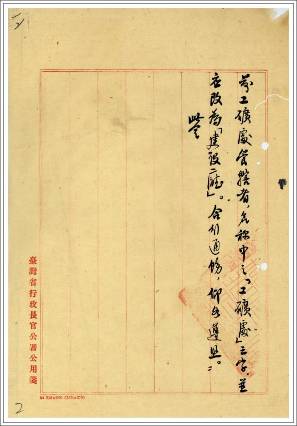 前工礦處管轄者,名稱中之「工礦處」三字,並
應改為「建設廳」。合行通飭,仰各遵照。
此令
臺灣省行政長官公署公用箋
2